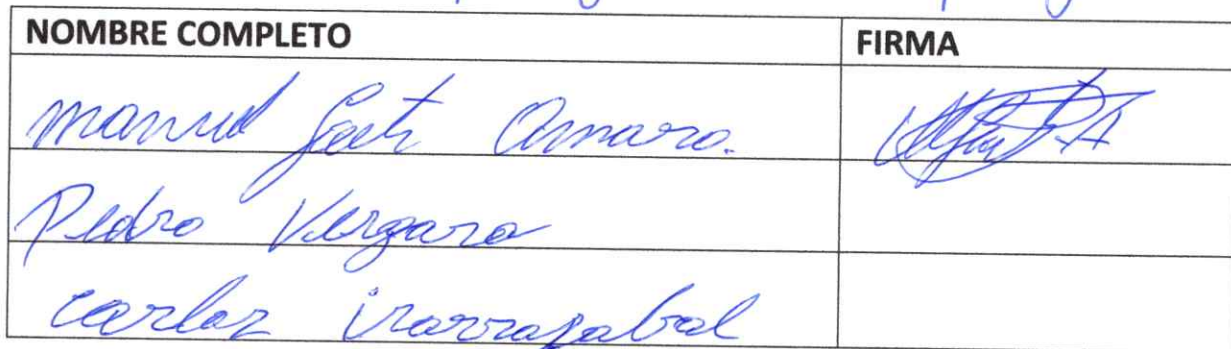 NOMBRE COMPLETO FIRMA
manuel Amaro.
Pedro Vergara
carlos irarrazabal